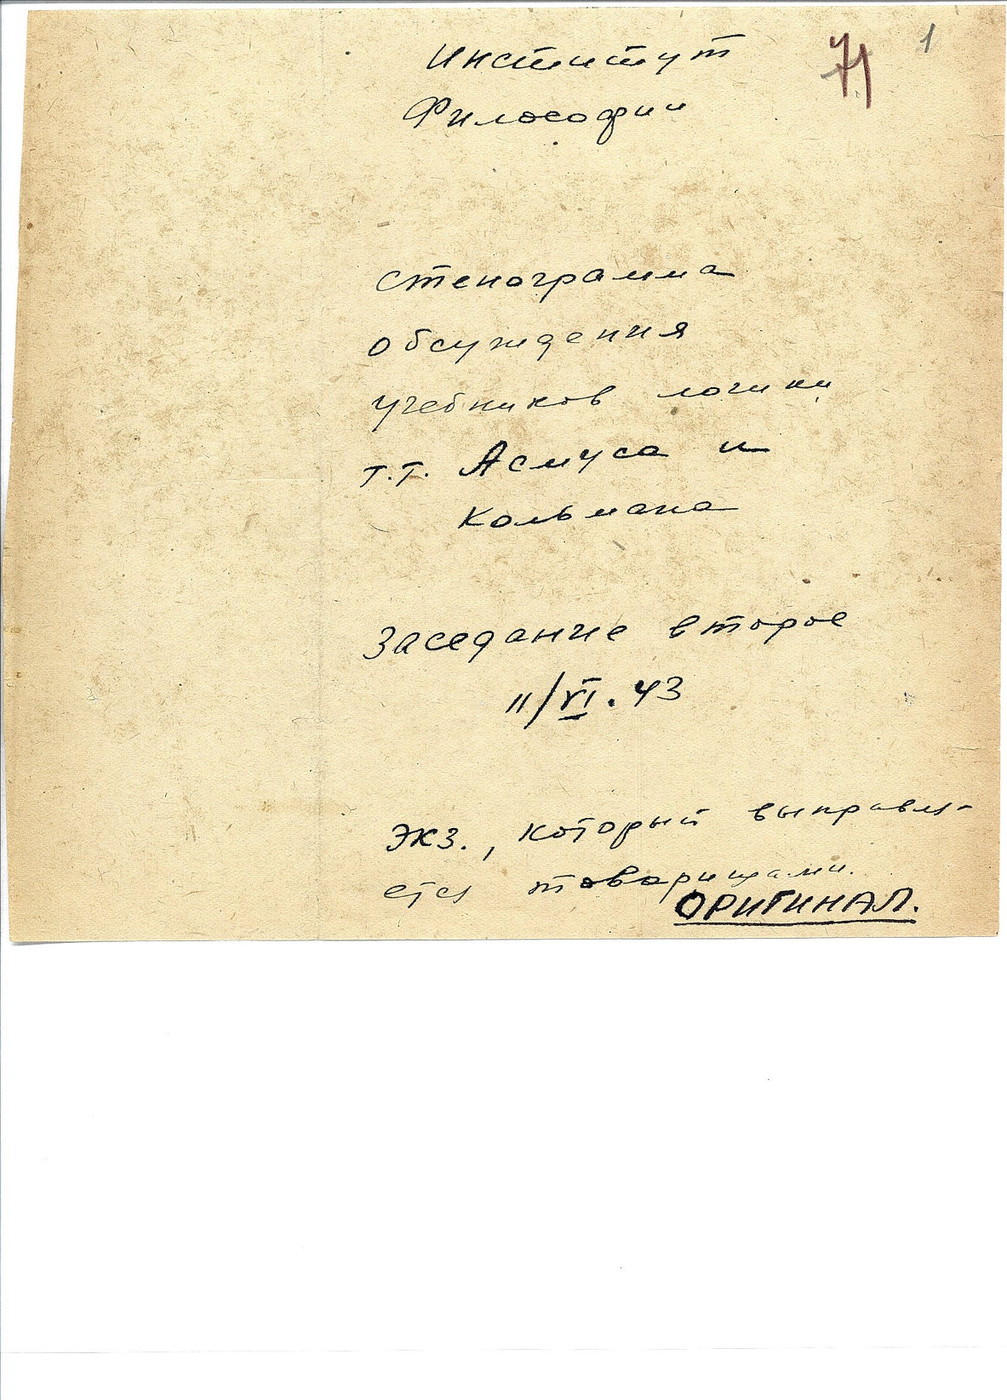 Институт
Философии
71
1
Стенограмма
обсуждения
учебников логики
т.т. Асмуса и
Кольмана
Заседание второе
11/VI.43
Экз., который выправля-
ется товарищами.
ОРИГИНАЛ.